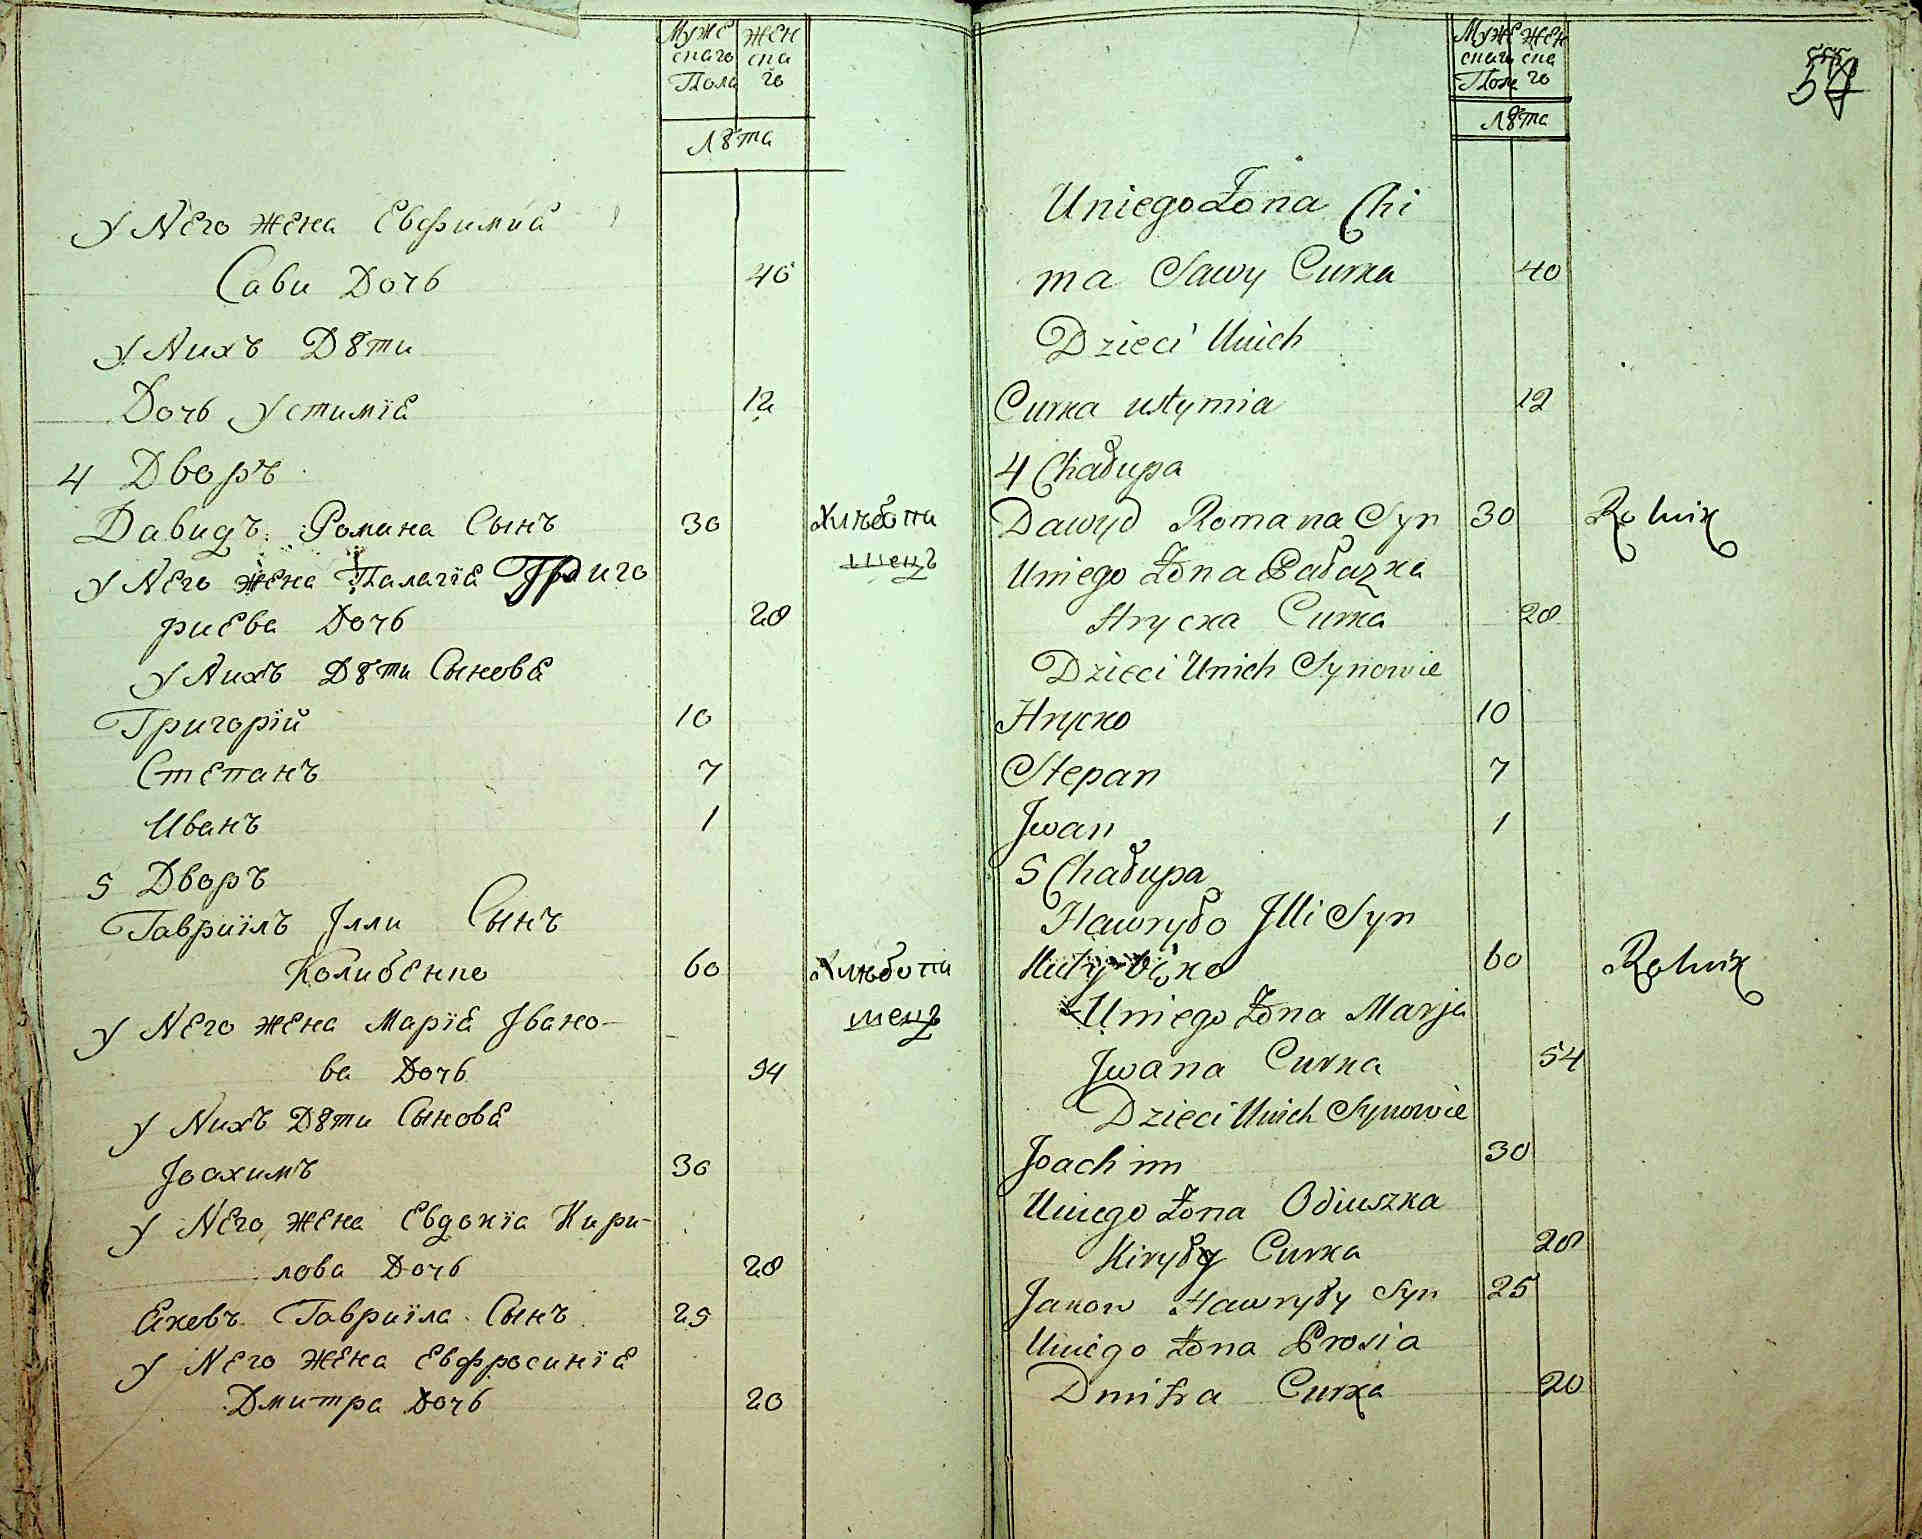 Муже Жен
скаго ска
Пола го
Лѣта
У Него жена Евфиміа
Сави Дочь 40
У Нихъ Дѣти
Дочь Устиміа 12
4 Дворъ
Давидъ Романа Сынъ 30 Хлѣбопа
шецъ
У Него жена Палагіа Григо
риева Дочь 28
У Нихъ Дѣти Сынове
Григорій 10
Степанъ 7
Иванъ 1
5 Дворъ
Гавриїлъ Іли Сынъ
Колибенко 60 Хлѣбопа
шецъ
У Него жена Маріа Івано-
ва Дочь 54
У Нихъ Дѣти Сынове
Іоахимъ 30
У Него жена Евдокіа Кири-
лова Дочь 28
Яковъ Гавриїла Сынъ 25
У Него жена Евфросиніа
Дмитра Дочь 20
Муже Жен
скаго ска
Пола го
Лѣта
Uniego Żona Chi
ma Sawy Curka 40
Dzieci Unich
Curka ustymia 12
4 Chałupa
Dawyd Romana Syn 30 Rolnik
Uniego Żona Pałazka
Hrycka Curka 28
Dzieci Unich Synowie
Hrycko 10
Stepan 7
Jwan 1
5 Chałupa
Hawryło Jlli Syn
60 Rolnik
Uniego Żona Marja
Jwana Curka 54
Dzieci Unich Synowie
Joachim 30
Uniego Żona Odiuszka
Kiryły Curka 28
Jakow Hawryły Syn 25
Uniego Żona Prosia
Dmitra Curka 20